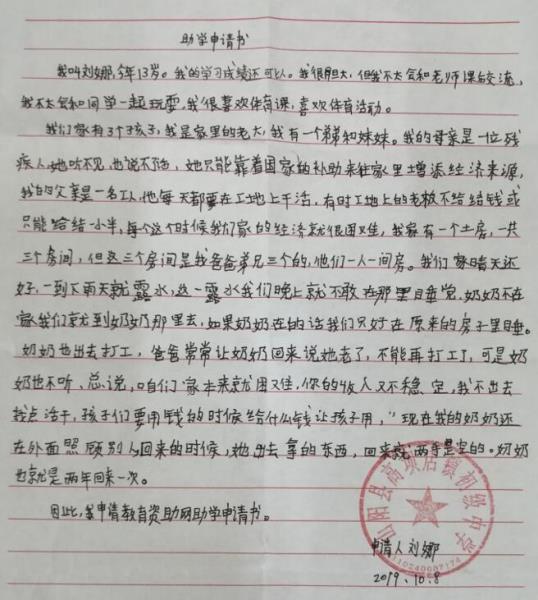 助学申请书
我叫刘娜,今年13岁。我的学习成绩还可以。我很胆大,但我不太会和老师课后交流,
我不太会和同学一起玩耍,我很喜欢体育课,喜欢体育活动。
我们家有3个孩子,我是家里的老大,我有一个弟弟和妹妹。我的母亲是一位残
疾人,她听不见,也说不话,她只能靠着国家的补助来往家里增添经济来源,
我的父亲是一名工人,他每天都要在工地上干活,有时工地上的老板不给结钱或
只能给结小半,每个这个时候我们家的经济就很困难,我家有一个土房,一共
三个房间,但这三个房间是我爸爸弟兄三个的,他们一人一间房。我们家晴天还
好,一到下雨天就露水,这一露水我们晚上就不敢在那里睡觉,奶奶不在
家我们就到奶奶那里去,如果奶奶在的话我们只好在原来的房子里睡。
奶奶也出去打工,爸爸常常让奶奶回来说她老了,不能再打工了,可是奶
奶也不听、总说,咱们家本来就困难,你的收入又不稳定,我不出去
找点活干,孩子们要用钱的时候给什么钱让孩子用,”现在我的奶奶还
在外面照顾别人回来的时候,她出去拿的东西,回来时两手是空的。奶奶
也就是两年回来一次。
因此,我申请教育资助网助学申请书。
山阳县高坝店镇初级中学
申请人刘娜
2019.10.8